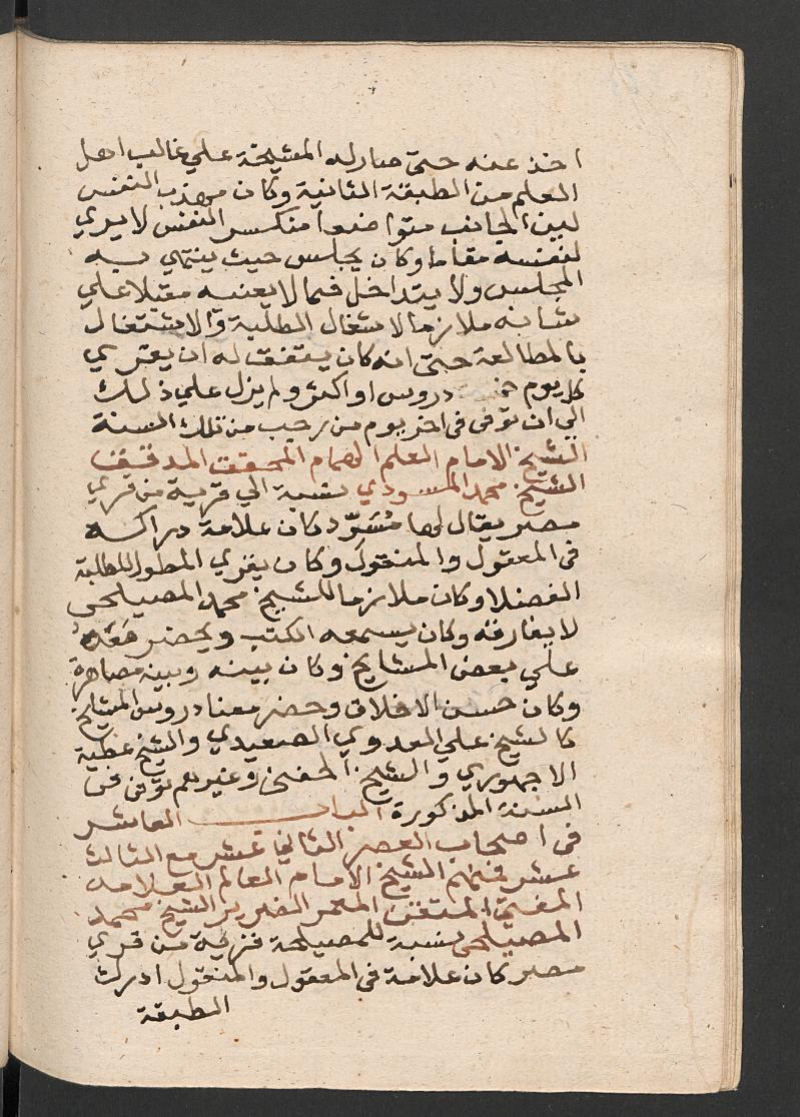 اخذ عنه حتى صار له المشيخة علي غالب اهل
العلم من الطبقة الثانية وكان مهذب النفس
لين الجانب متواضعا منكسر النفس لا يري
لنفسه مقاما وكان يجلس حيث ينتهي به
المجلس ولا يتداخل فيما لا يعنيه مقبلا علي
شانه ملازما لاشغال الطلبة والاشتغال
بالمطالعة حتى انه كان يتفق له ان يقري
كل يوم دروس او اكثر ولم يزل علي ذلك
الي ان توفى فى اخر يوم من رجب من تلك السنة
الشيخ الامام العلم الهمام المحقق المدقيق
الشيخ محمد المسودي نسبة الي قرية من قري
مصر يقال لها مُسَوّد كان علامة دراكه
فى المعقول والمنقول وكان يقري المطول للطلبة
الفضلا وكان ملازما للشيخ محمد المصيلحى
لا يفارقه وكان يسمعه الكتب ويحضر معه
علي بعض المشايخ وكان بينه وبينه مصاهرة
وكان حسن الاخلاق وحضر معنا دروس المشايخ
كالشيخ علي العدوي الصعيدي والشيخ عطية
الاجهوري والشيخ الحفنى وغيرهم توفى فى
السنة المذكورة الباب العاشر
فى اصحاب العصر الثاني عشر مع الثالث
عشر فمنهم الشيخ الامام العالم العلامه
المفتى المتقن المعمر الضرير الشيخ محمد
المصيلحى نسبة للمصيلحة قرية من قري
مصر كان علامة فى المعقول والمنقول ادرك
الطبقة